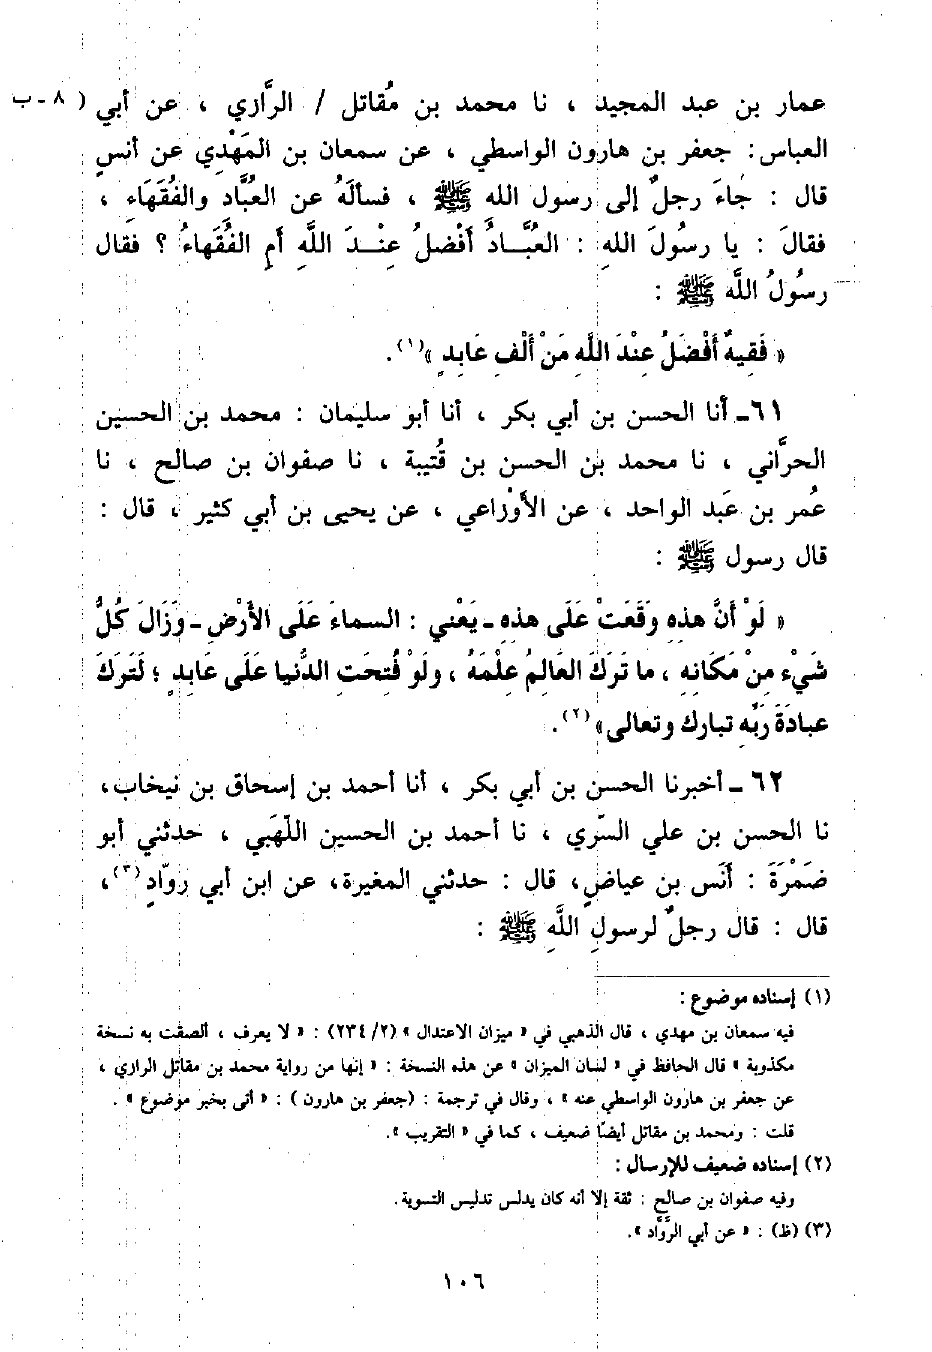 عمار بن عبد المجيد ، نا محمد بن مُقاتل / الرَّازي ، عن أبي ( ٨ - ب
العباس : جعفر بن هارون الواسطي ، عن سمعان بن المَهْدِي عن أنسٍ
قال : جاءَ رجلٌ إلى رسول الله ﷺ ، فسألَهُ عن العُبَّادِ والفُقَهَاءِ ،
فقالَ : يا رسُولَ اللهِ : العُبَّــادُ أفْضلُ عِنْــدَ اللَّهِ أمِ الفُقَهاءُ ؟ فقال
رسُولُ اللَّه ﷺ :
« فَقِيهٌ أفْضَلُ عِنْدَ اللَّهِ مَنْ أَلْفِ عَابِدٍ »(١).
٦١ـ أنا الحسن بن أبي بكر ، أنا أبو سليمان : محمد بن الحسين
الحرَّاني ، نا محمد بن الحسن بن قُتيبة ، نا صفوان بن صالح ، نا
عُمر بن عَبد الواحد ، عن الأَوْزاعي ، عن يحيى بن أبي كثير ، قال :
قال رسول ﷺ :
« لَوْ أَنَّ هذِهِ وَقَعَتْ عَلَى هذِهِ ـ يَعْني : السماءَ عَلَى الأَرْضِ ـ وَزَالَ كُلُّ
شَيْءٍ مِنْ مَكَانِهِ ، ما تَرَكَ العَالِمُ عِلْمَهُ ، ولَوْ فُتحَتِ الدُّنيا عَلَى عَابِدٍ ؛ لَتَرَكَ
عبادَةَ رَبِّهِ تبارك وتعالى»(٢).
٦٢ ـ أخبرنا الحسن بن أبي بكر ، أنا أحمد بن إسحاق بن نيخاب،
نا الحسن بن علي السّري ، نا أحمد بن الحسين اللّهَبي ، حدثني أبو
ضَمْرَةَ : أَنَس بن عياضٍ، قال : حدثني المغيرة، عن ابن أبي روّادٍ(٣)،
قال : قال رجلٌ لرسولِ اللَّهِ ﷺ :
(١) إسناده موضوع :
فيه سمعان بن مهدي ، قال الذهبي في « ميزان الاعتدال » (٢/ ٢٣٤) : « لا يعرف ، ألصقت به نسخة
مكذوبة » قال الحافظ في « لسان الميزان » عن هذه النسخة : « إنها من رواية محمد بن مقاتل الرازي ،
عن جعفر بن هارون الواسطي عنه » ، وقال في ترجمة : (جعفر بن هارون ) : « أتى بخبر موضوع » .
قلت : ومحمد بن مقاتل أيضًا ضعيف ، كما في « التقريب ».
(٢) إسناده ضعيف للإرسال :
وفيه صفوان بن صالح : ثقة إلا أنه كان يدلس تدليس التسوية .
(٣) (ظ) : « عن أبي الرَّوَّاد ».
١٠٦